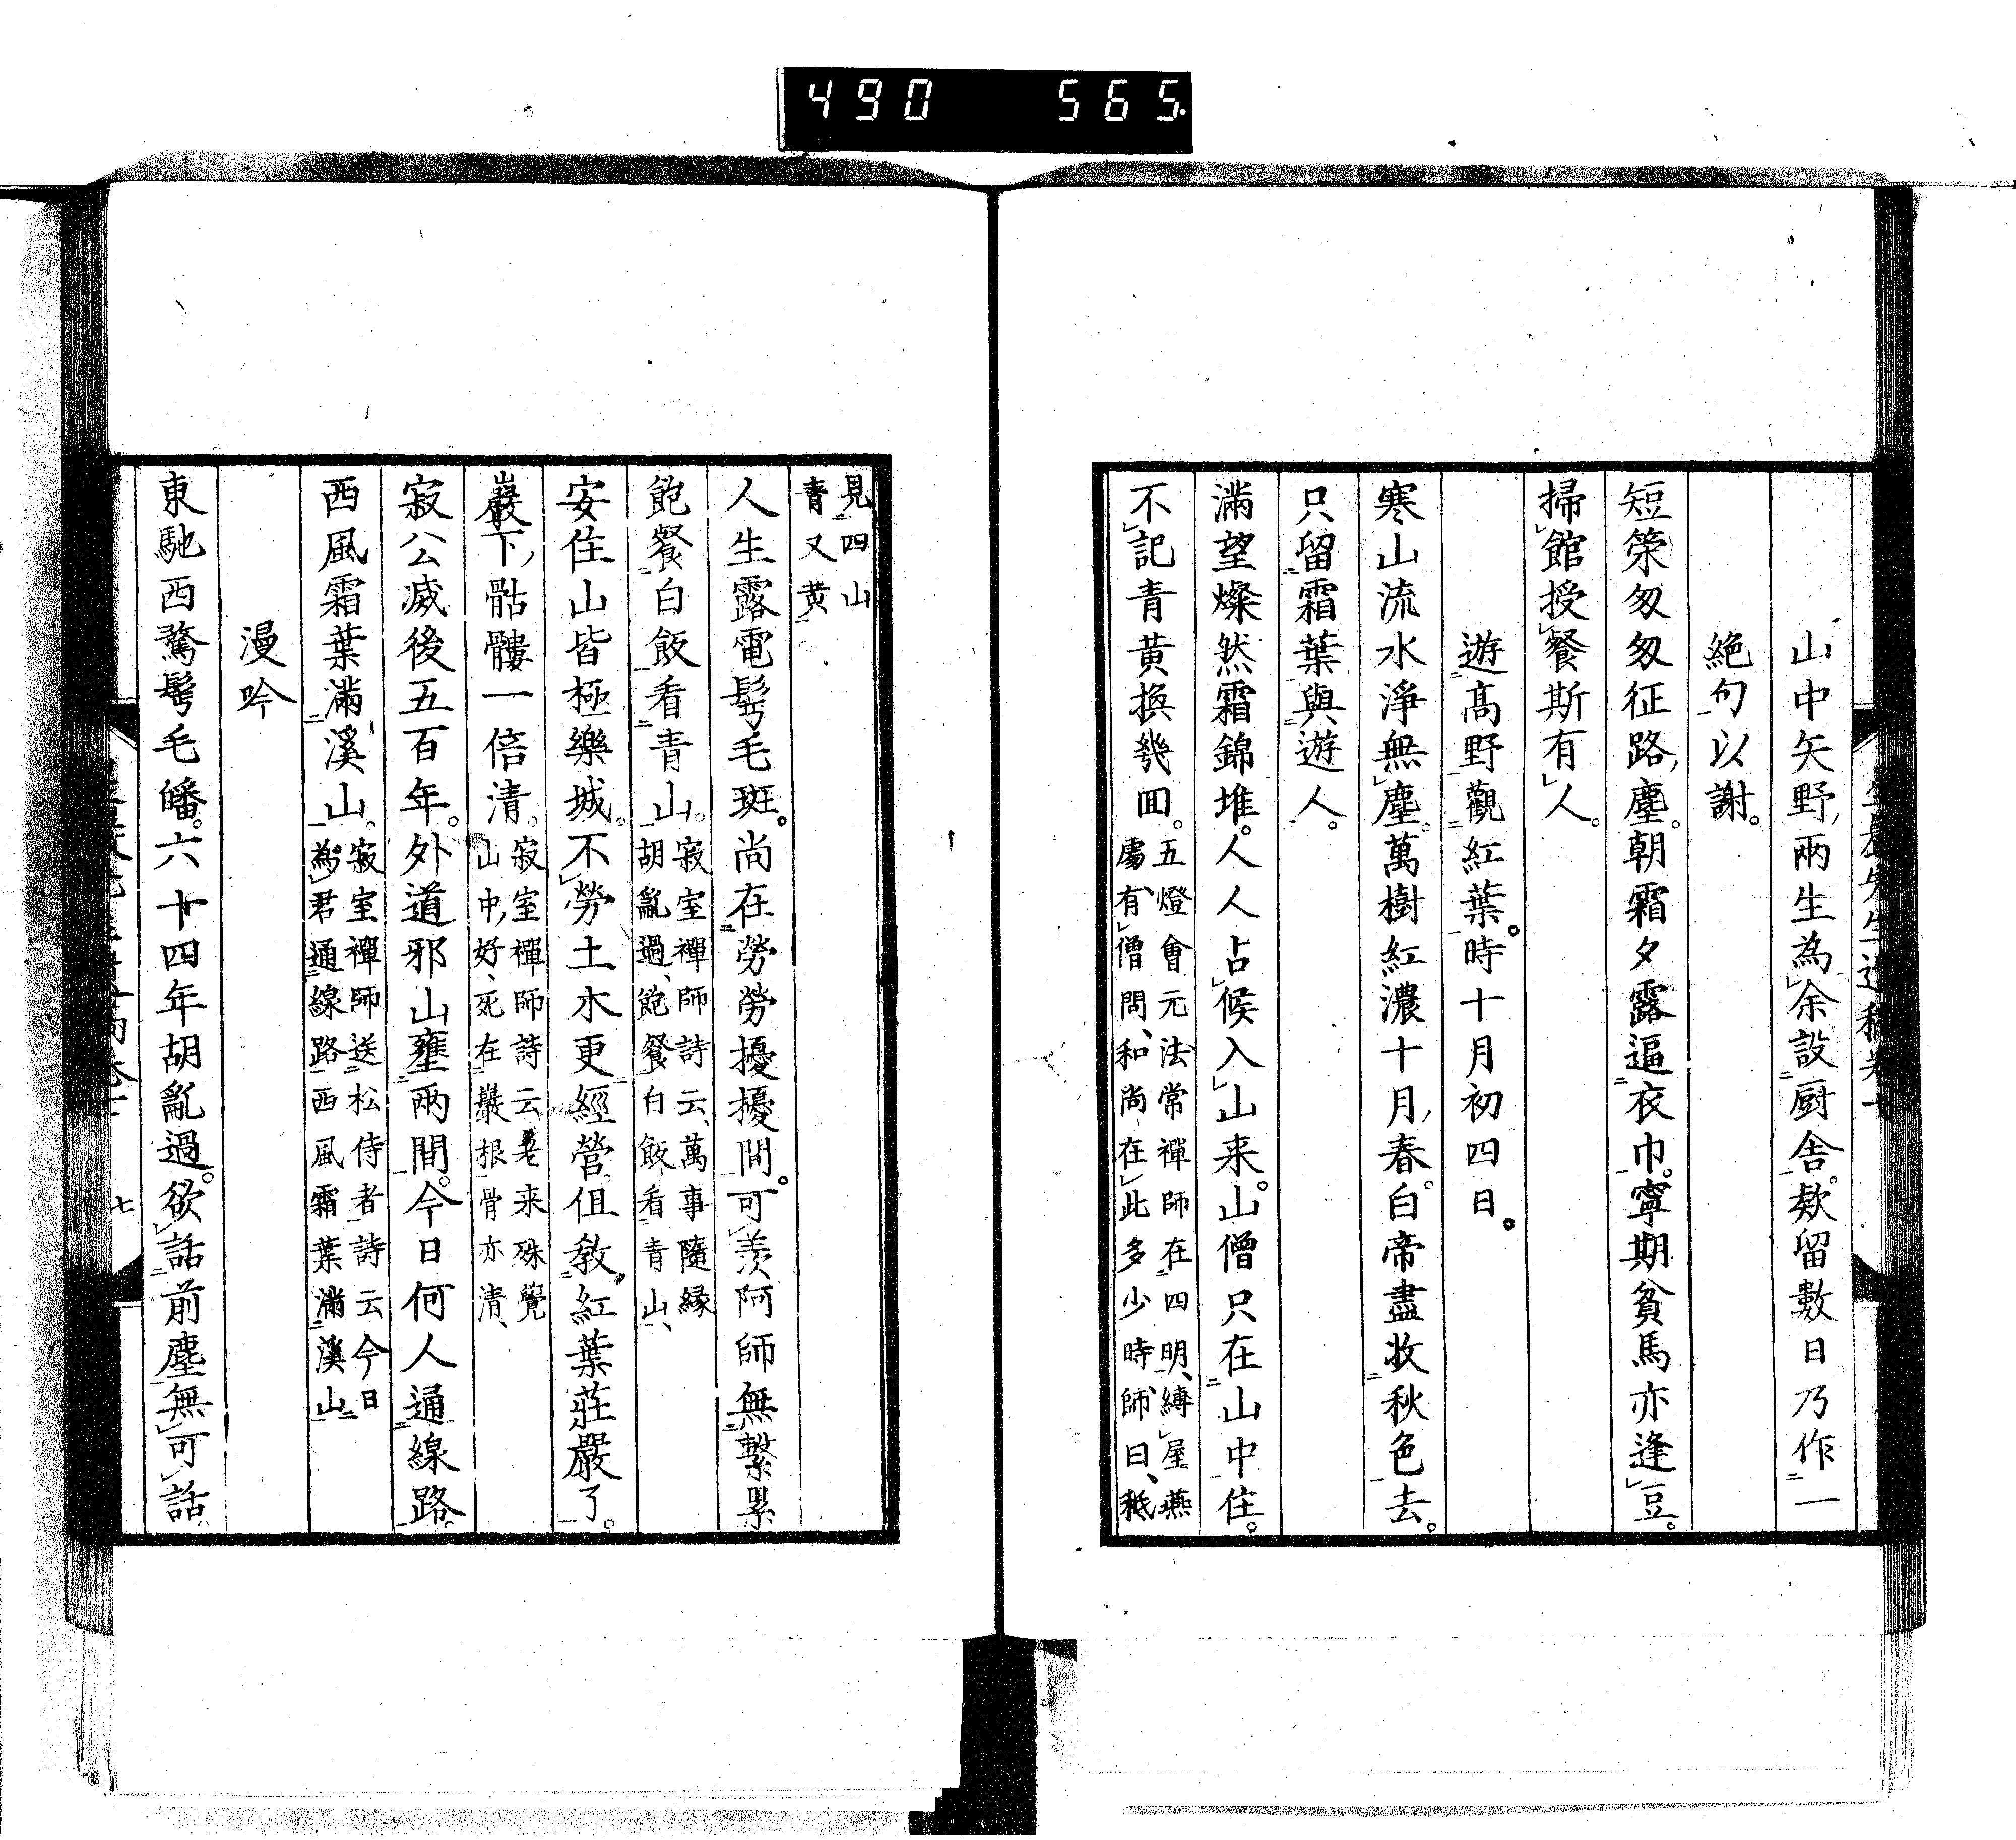 490 565.
山中矢野,兩生為余設厨舎。欵留數日乃作一
絶句以謝。
短筞匆匆征路,塵。朝霜夕露逼衣巾。寧期貧馬亦逢豆。
掃館授餐斯有人。
遊高野觀紅葉。時十月初四日。
寒山流水淨無塵。萬樹紅濃十月,春。白帝盡收秋色去。
只留霜葉與遊人。
滿望燦然霜錦堆。人人占候入山来。山僧只在山中住。
不記青黄換幾回。
五燈會元法常禪師在四明、縛屋燕
處有僧問、和尚在此多少時、師曰、秖
見四山
青又黄
人生露電髩毛斑。尚在勞勞擾擾間。可羨阿師無繋累
飽餐白飯看青山。
寂室禪師詩云、萬事隨縁
胡亂過、飽餐白飯看青山、
安住山皆極樂城。不勞土木更經營。但教紅葉莊嚴了。
巖下,骷髏一倍清。
寂室禪師詩云、老来殊覺
山中,好、死在巖根骨亦清、
寂公滅後五百年。外道邪山壅兩間。今日何人通線路。
西風霜葉滿溪山。
寂室禪師送松侍者詩云今日
為君通線路西風霜葉滿溪山
漫吟
東馳西騖髩毛皤。六十四年胡亂過。欲話前塵無可話。
七